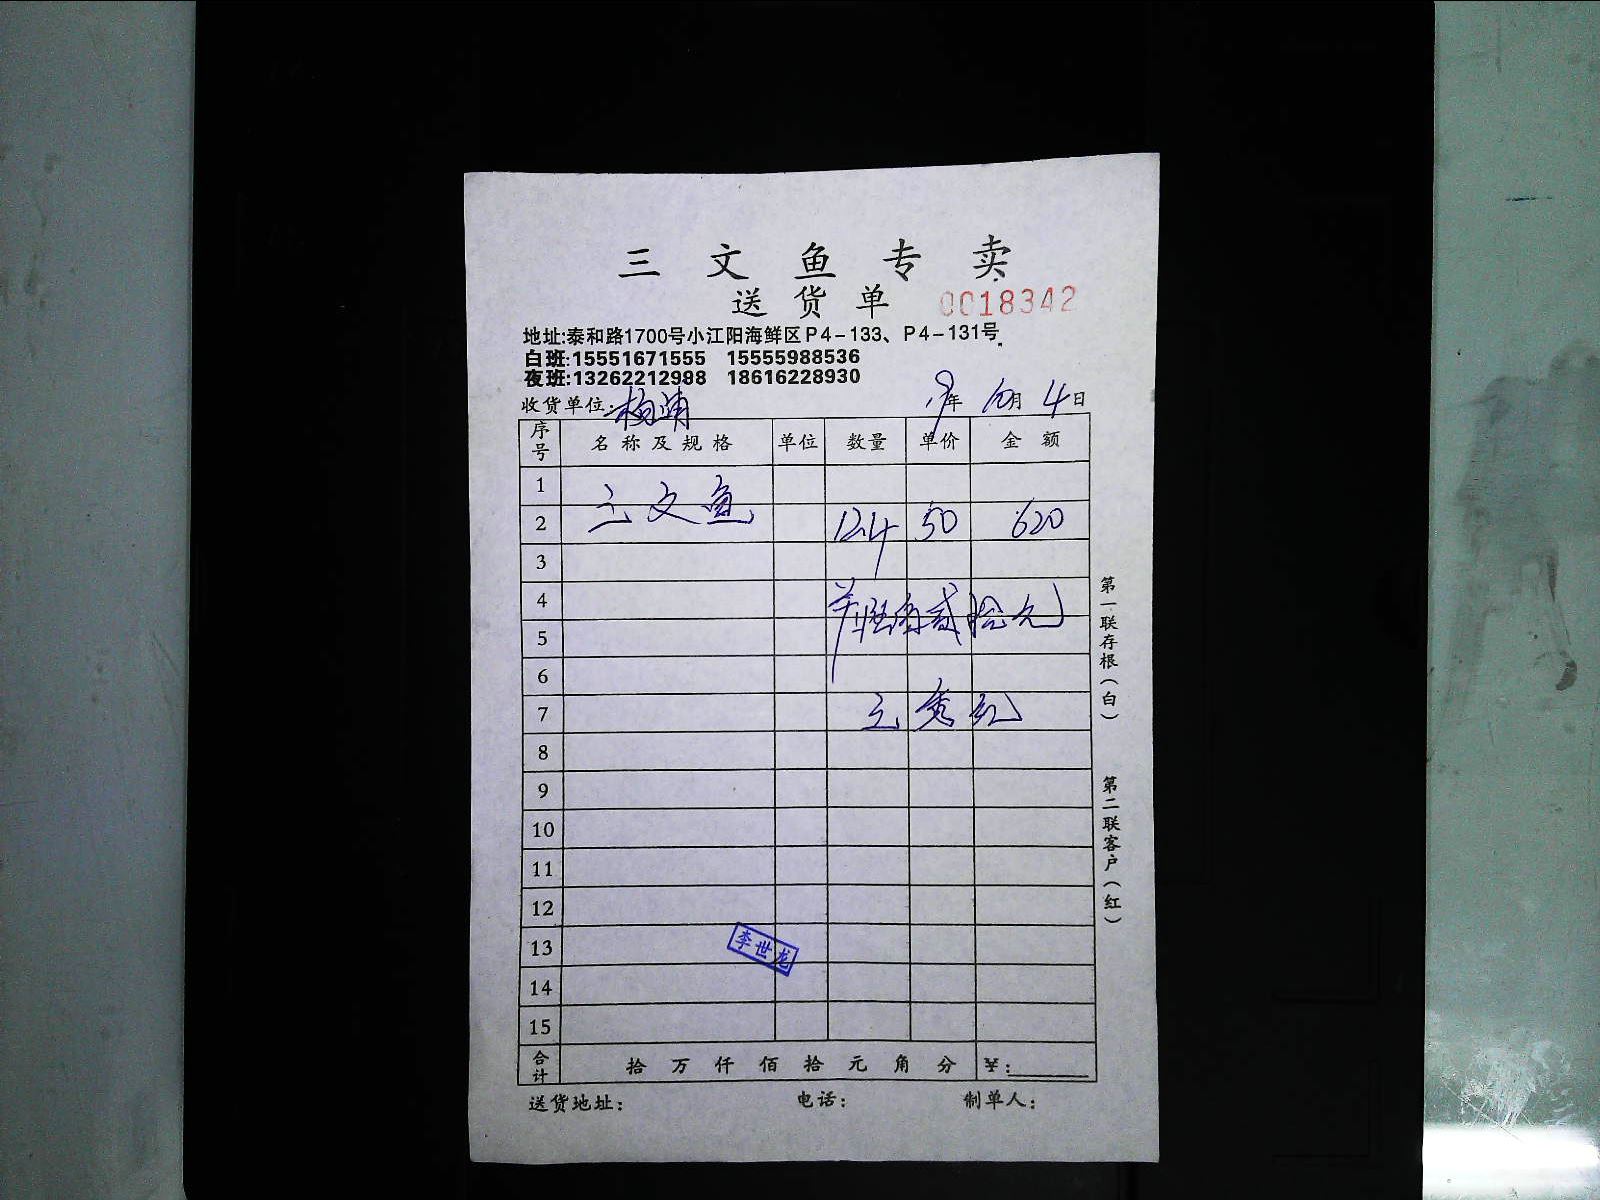 三文鱼专卖
送货单 0018342
地址:泰和路1700号小江阳海鲜区P4-133、P4-131号
白班:15551671555 15555988536
夜班:13262212998 18616228930
收货单位: 年 10月 4日
序号 名称及规格 单位 数量 单价 金额
1
三文鱼
2 12.4 50 620
3
4
5 贰拾元
6
7
8
9
10
11
12
13 李世龙
14
15
合计 拾 万 仟 佰 拾 元 角 分 ¥:
送货地址: 电话: 制单人:
第一联存根(白)
第二联客户(红)